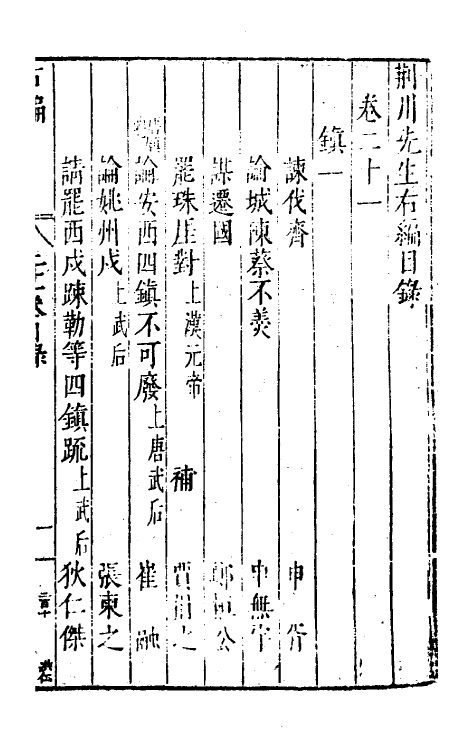 荆川先生右編目錄
卷二十一
鎮一
諫伐齊 申胥
論城陳蔡不羹 申無宇
謀遷國 鄭桓公
罷珠崖對 上漢元帝 補 賈捐之
論安西四鎮不可廢 上唐武后 崔融
論姚州戍 上武后 張柬之
請罷西戍踈勒等四鎮疏 上武后 狄仁傑
右編 目錄 一